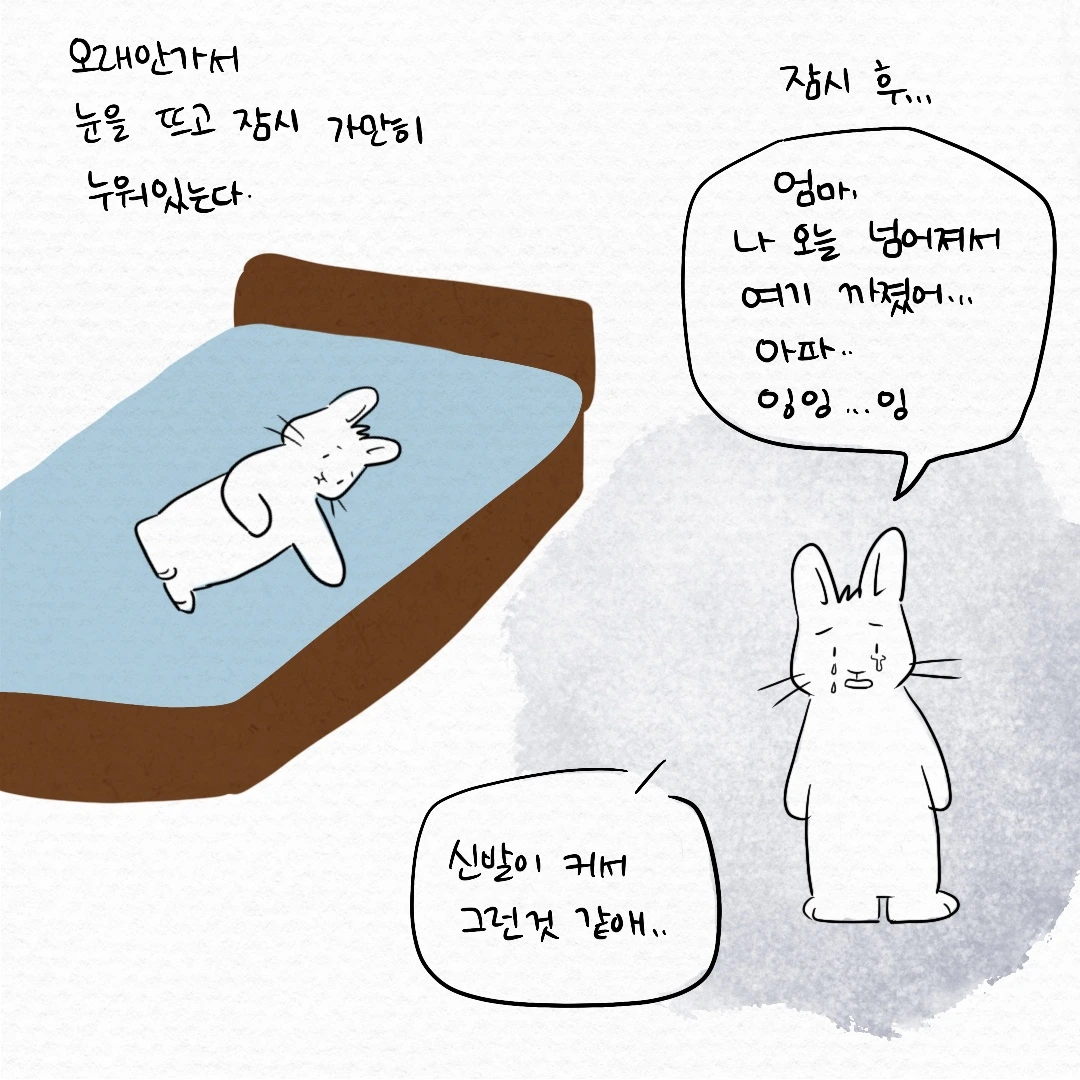 오래안가서
눈을 뜨고 잠시 가만히
누워있는다.
잠시 후...
엄마,
나 오늘 넘어져서
여기 까졌어...
아파..
잉잉...잉
신발이 커서
그런것 같애..